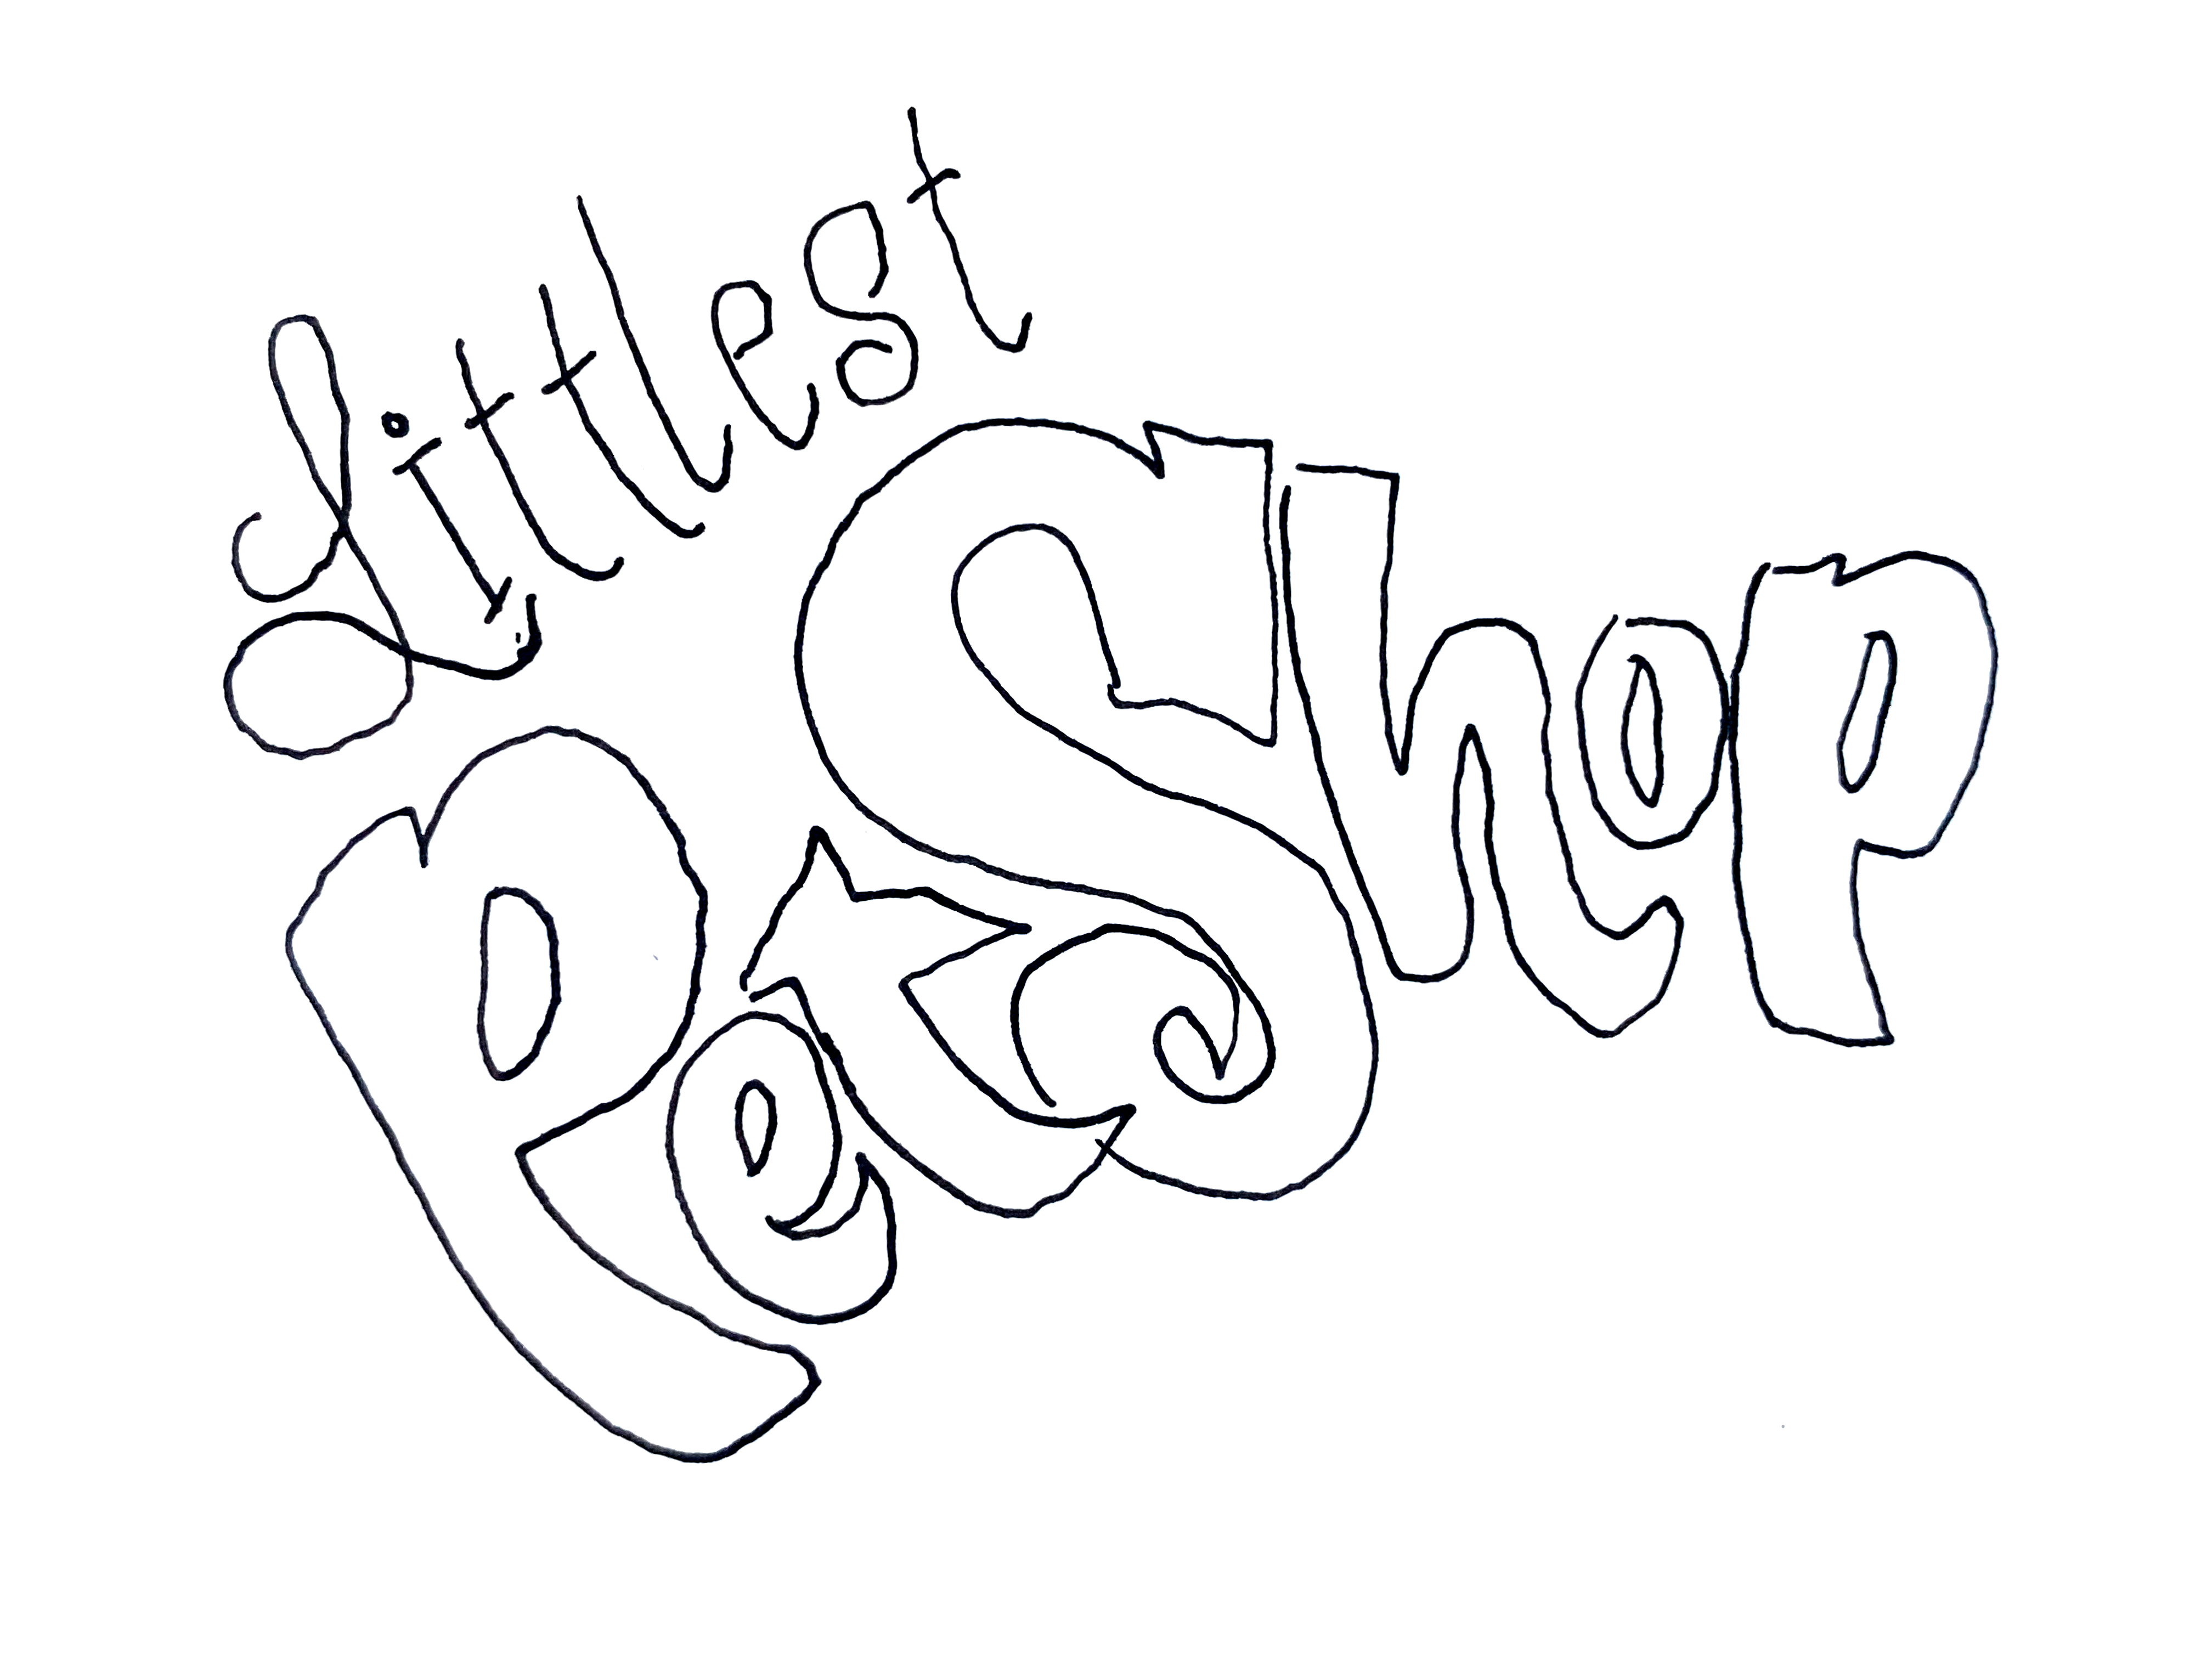 Littlest
Pet Shop